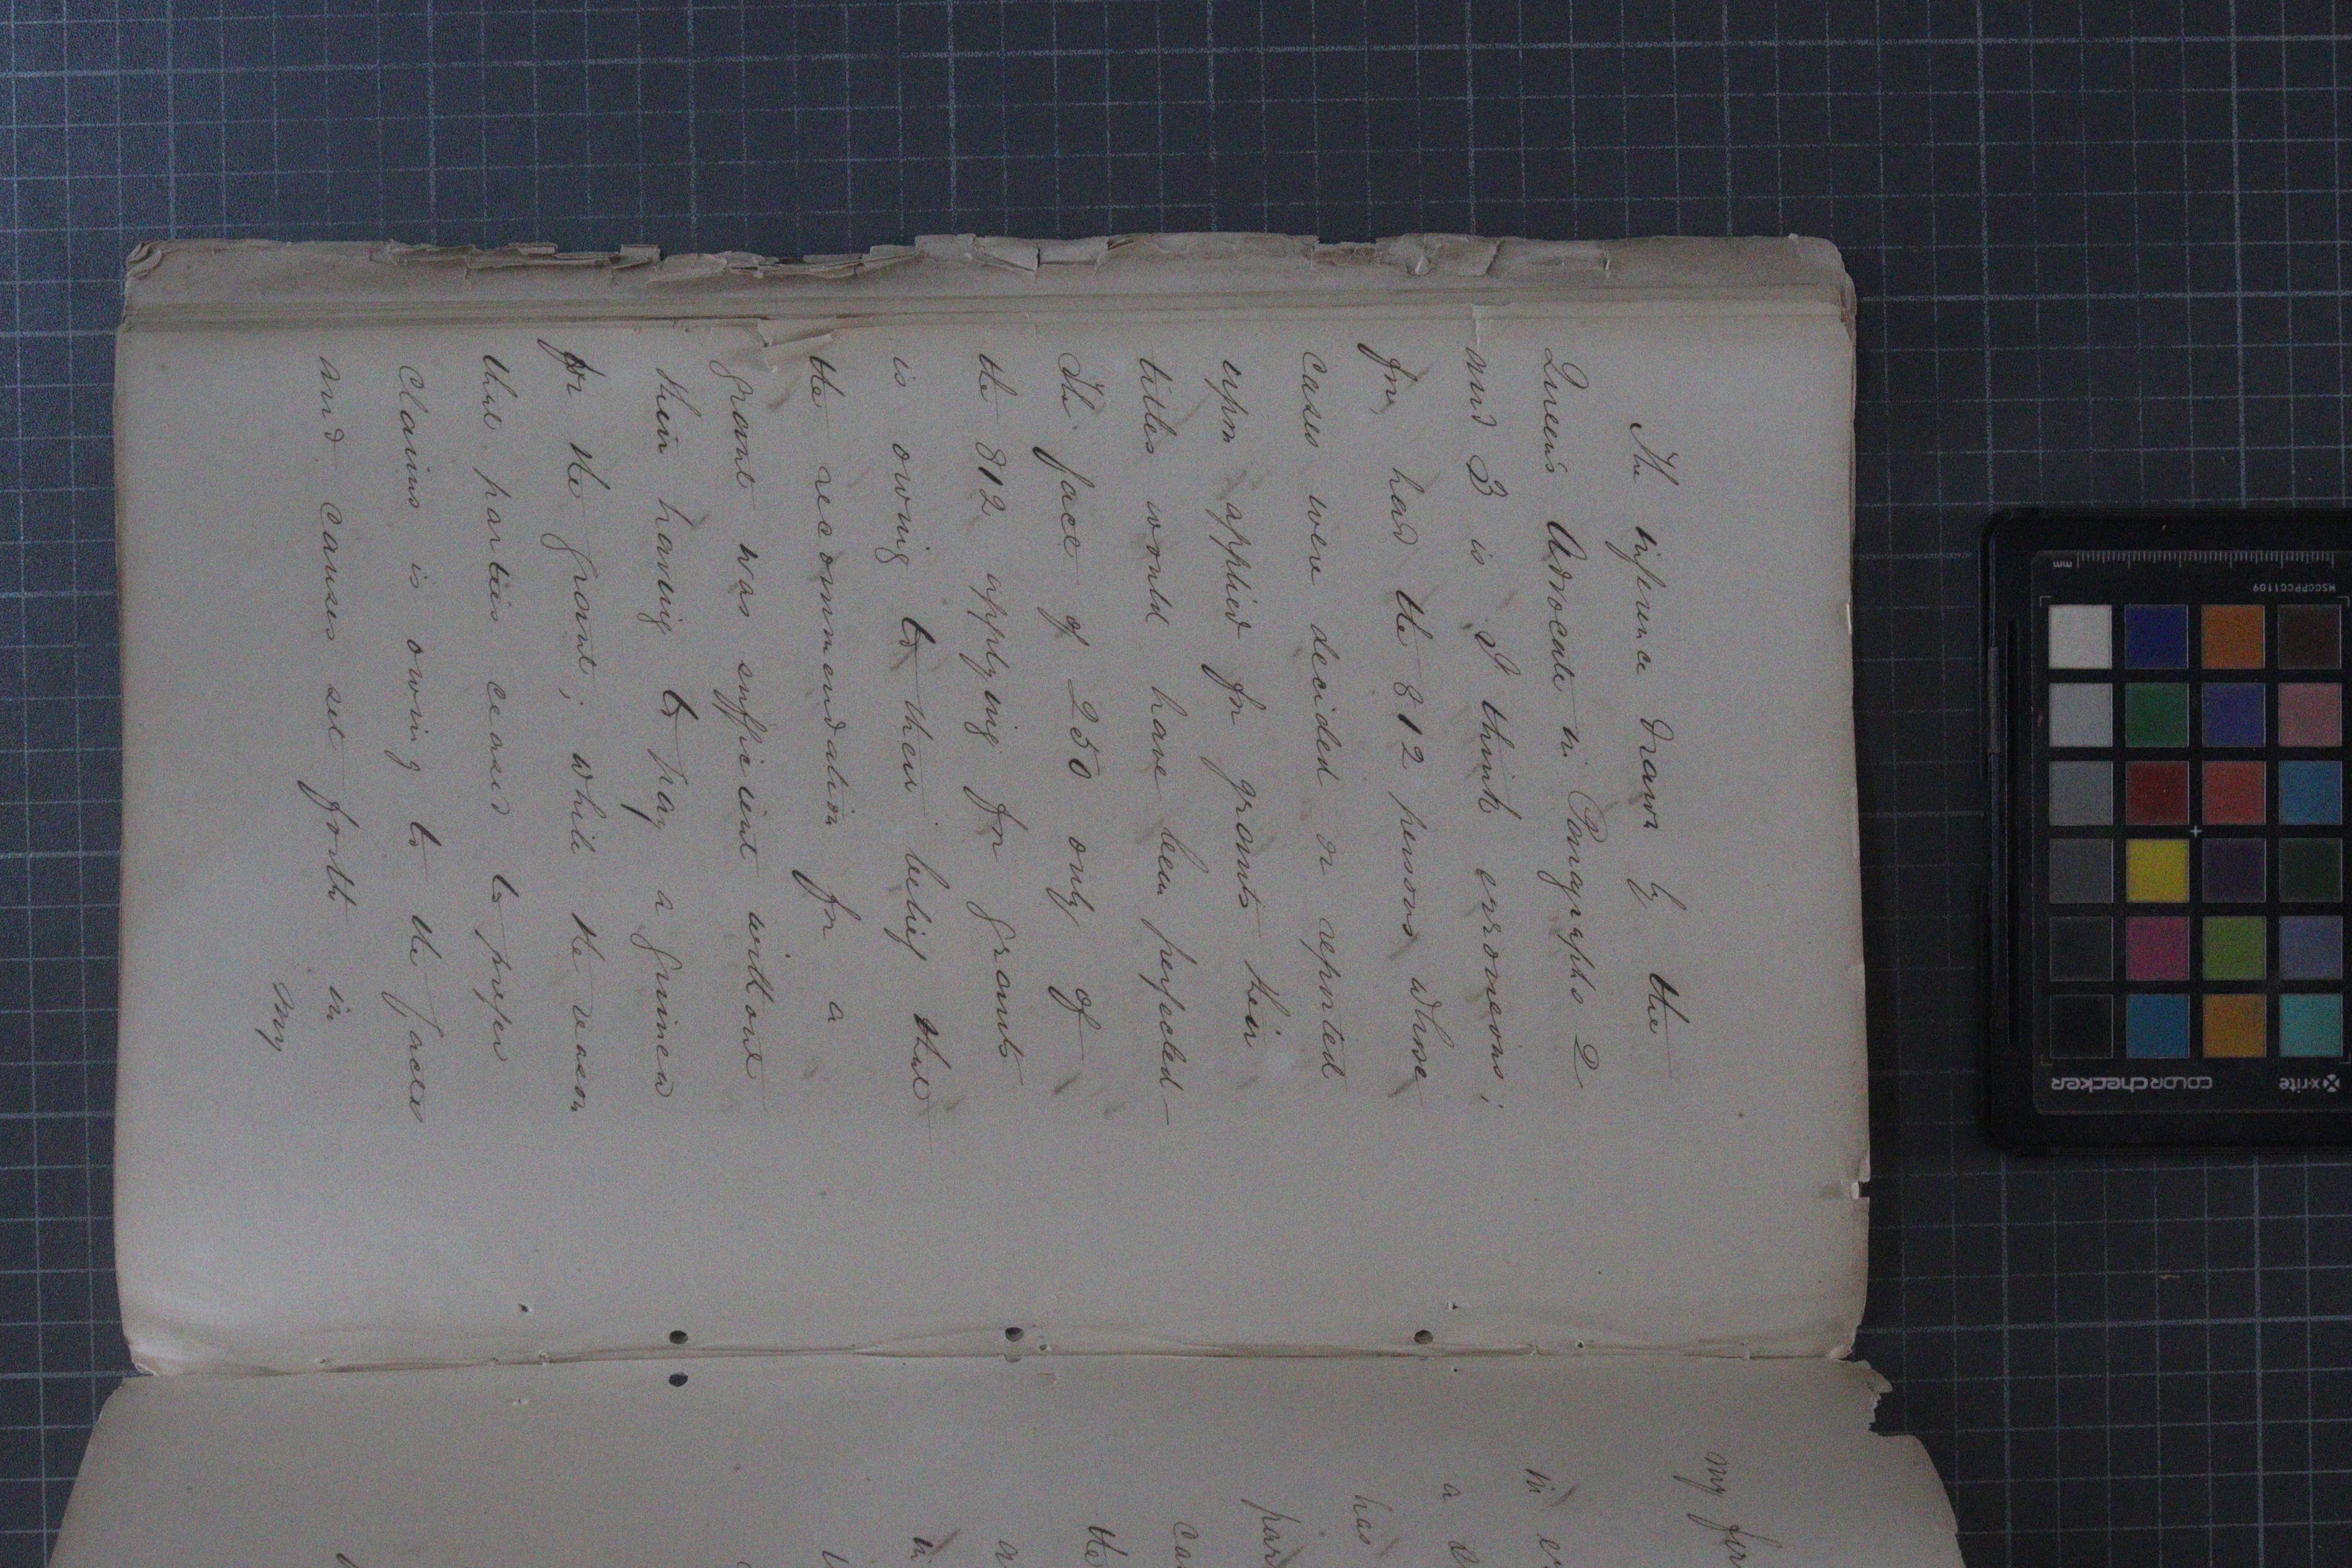 The inference drawn by the
Queen's Advocate in Paragraphs 2
and 3 is I think erroneous;
for, had the 812 persons whose
cases were decided or reported
upon applied for grants their
titles would have been perfected -
The face of 250 only of
the 812 applying for grants
is owing to their belief that
the recommendation for a
grant was sufficient without
their having to pay a guinea
for the grant; while the reason
that parties ceased to prefer
Claims is owing to the facts
and causes set forth in
my
my
in
a
has
the
mm
MSCCPPCC1109
x-rite
COLORCHECKER